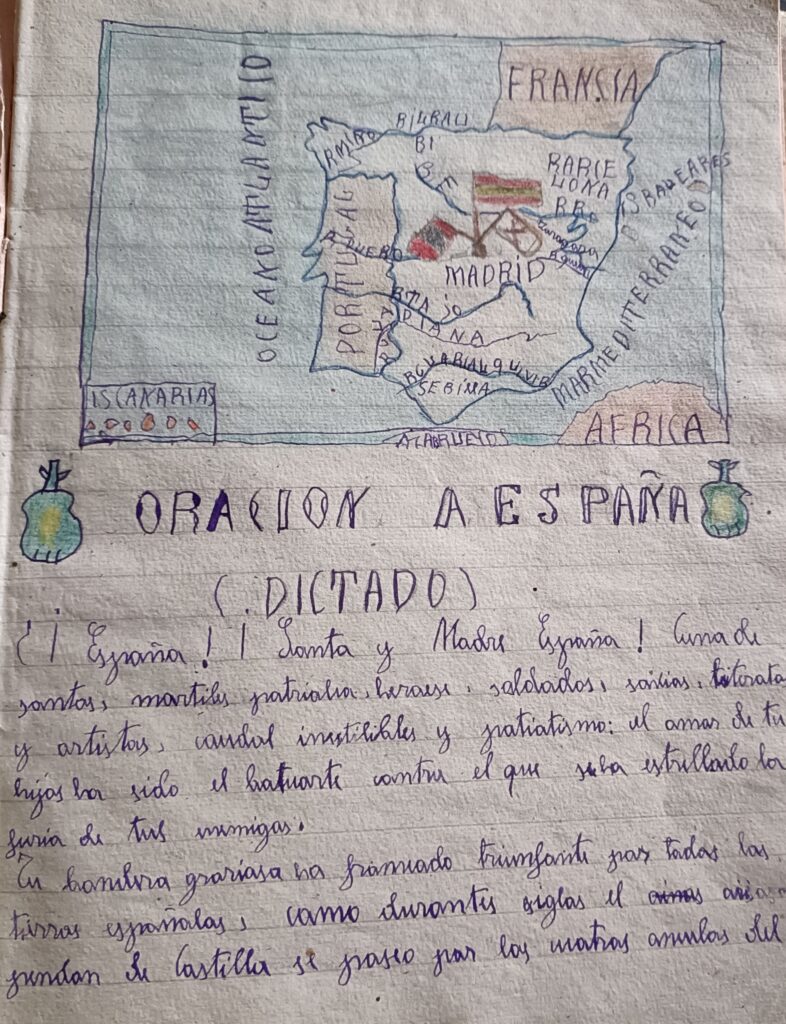 OCEANO ATLANTICO
FRANSIA
BILBAU
RMIÑO
BI
BE
BARCE
LONA
RRO
Zaragoza
IS BALEARES
PORTUGAL
R DUERO
MADRID
RTAJO
DIANA
RGUARIALQUIVIR
SEBILLA
MAR MEDITERRANEO
ISCANARIAS
AFRICA
ORACION A ESPAÑA
(.DICTADO)
¡España! ¡Santa y Madre España! Cuna de
santas, martiles patrialia, heraese, soldados, saicias, literata
y artistas, caudal inestilibles y patiatismo: el amar de tu
hijos ha sido el batuarte contra el que seha estrellado la
furia de tus enemigas.
Tu bambera grariasa ha framuado triunfante par tadas las
tierras españalas, camo durantes siglas el
pendan de Castilla se paseo par las matras amulas del